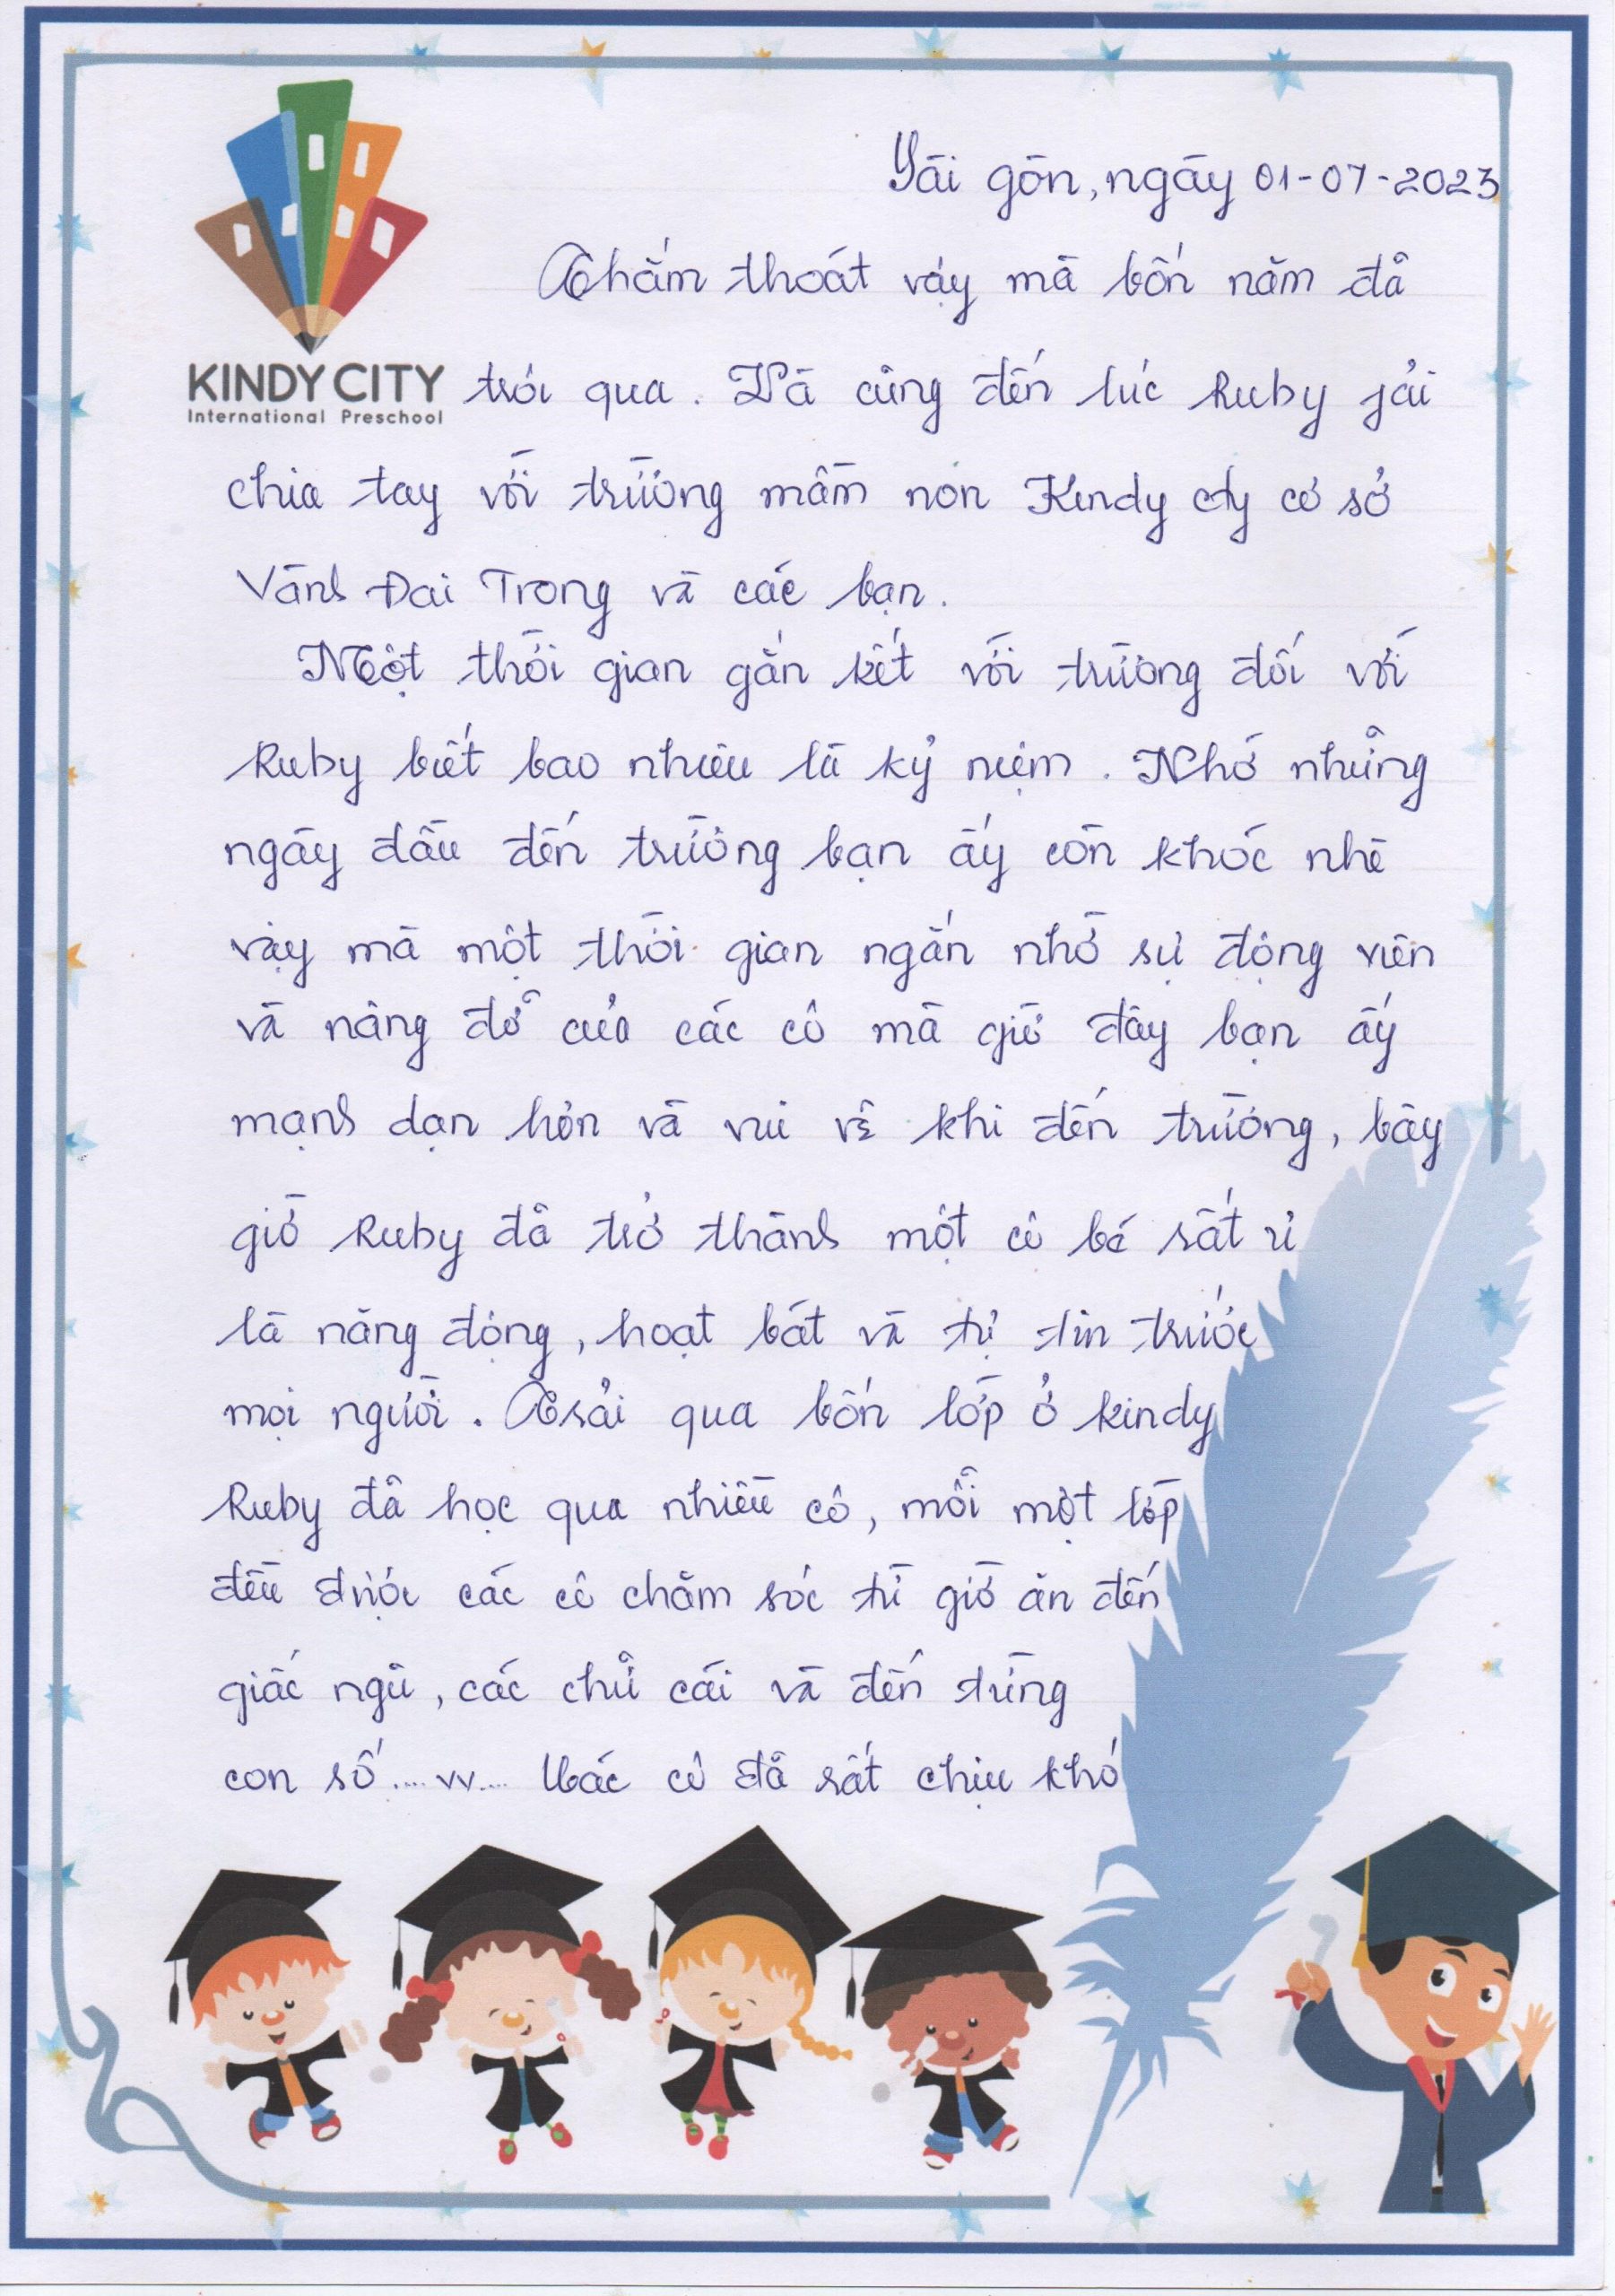 Sài gòn, ngày 01-07-2023
Thắm thoát vậy mà bốn năm đã
KINDY CITY
International Preschool
trôi qua. Và cũng đến lúc Ruby fải
chia tay với trường mầm non Kindy cty cơ sở
Vành Đai Trong và các bạn.
Một thời gian gắn kết với trường đối với
Ruby biết bao nhiêu là kỷ niệm. Nhớ những
ngày đầu đến trường bạn ấy còn khóc nhè
vậy mà một thời gian ngắn nhờ sự động viên
và nâng đỡ của các cô mà giờ đây bạn ấy
mạnh dạn hơn và vui vẽ khi đến trường, bây
giờ Ruby đã trở thành một cô bé rất ư
là năng động, hoạt bát và tự tin trước
mọi người. Trải qua bốn lớp ở kindy
Ruby đã học qua nhiều cô, mỗi một lớp
đều được các cô chăm sóc từ giờ ăn đến
giấc ngũ, các chữ cái và đến từng
con số....vv.... Các cô đã rất chịu khó